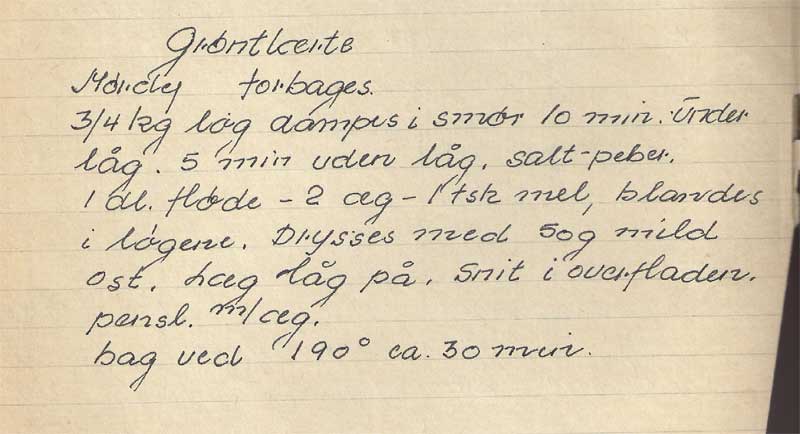 Grøntlærte
Mørdej forbages.
3/4 kg løg dampes i smør 10 min. Under
låg. 5 min uden låg, salt-peber.
1 dl. fløde - 2 æg - 1 tsk mel, blandes
i løgene. Drysses med 50g mild
ost. Læg låg på. Snit i overfladen.
pensl. m/æg.
bag ved 190° ca. 30 min.